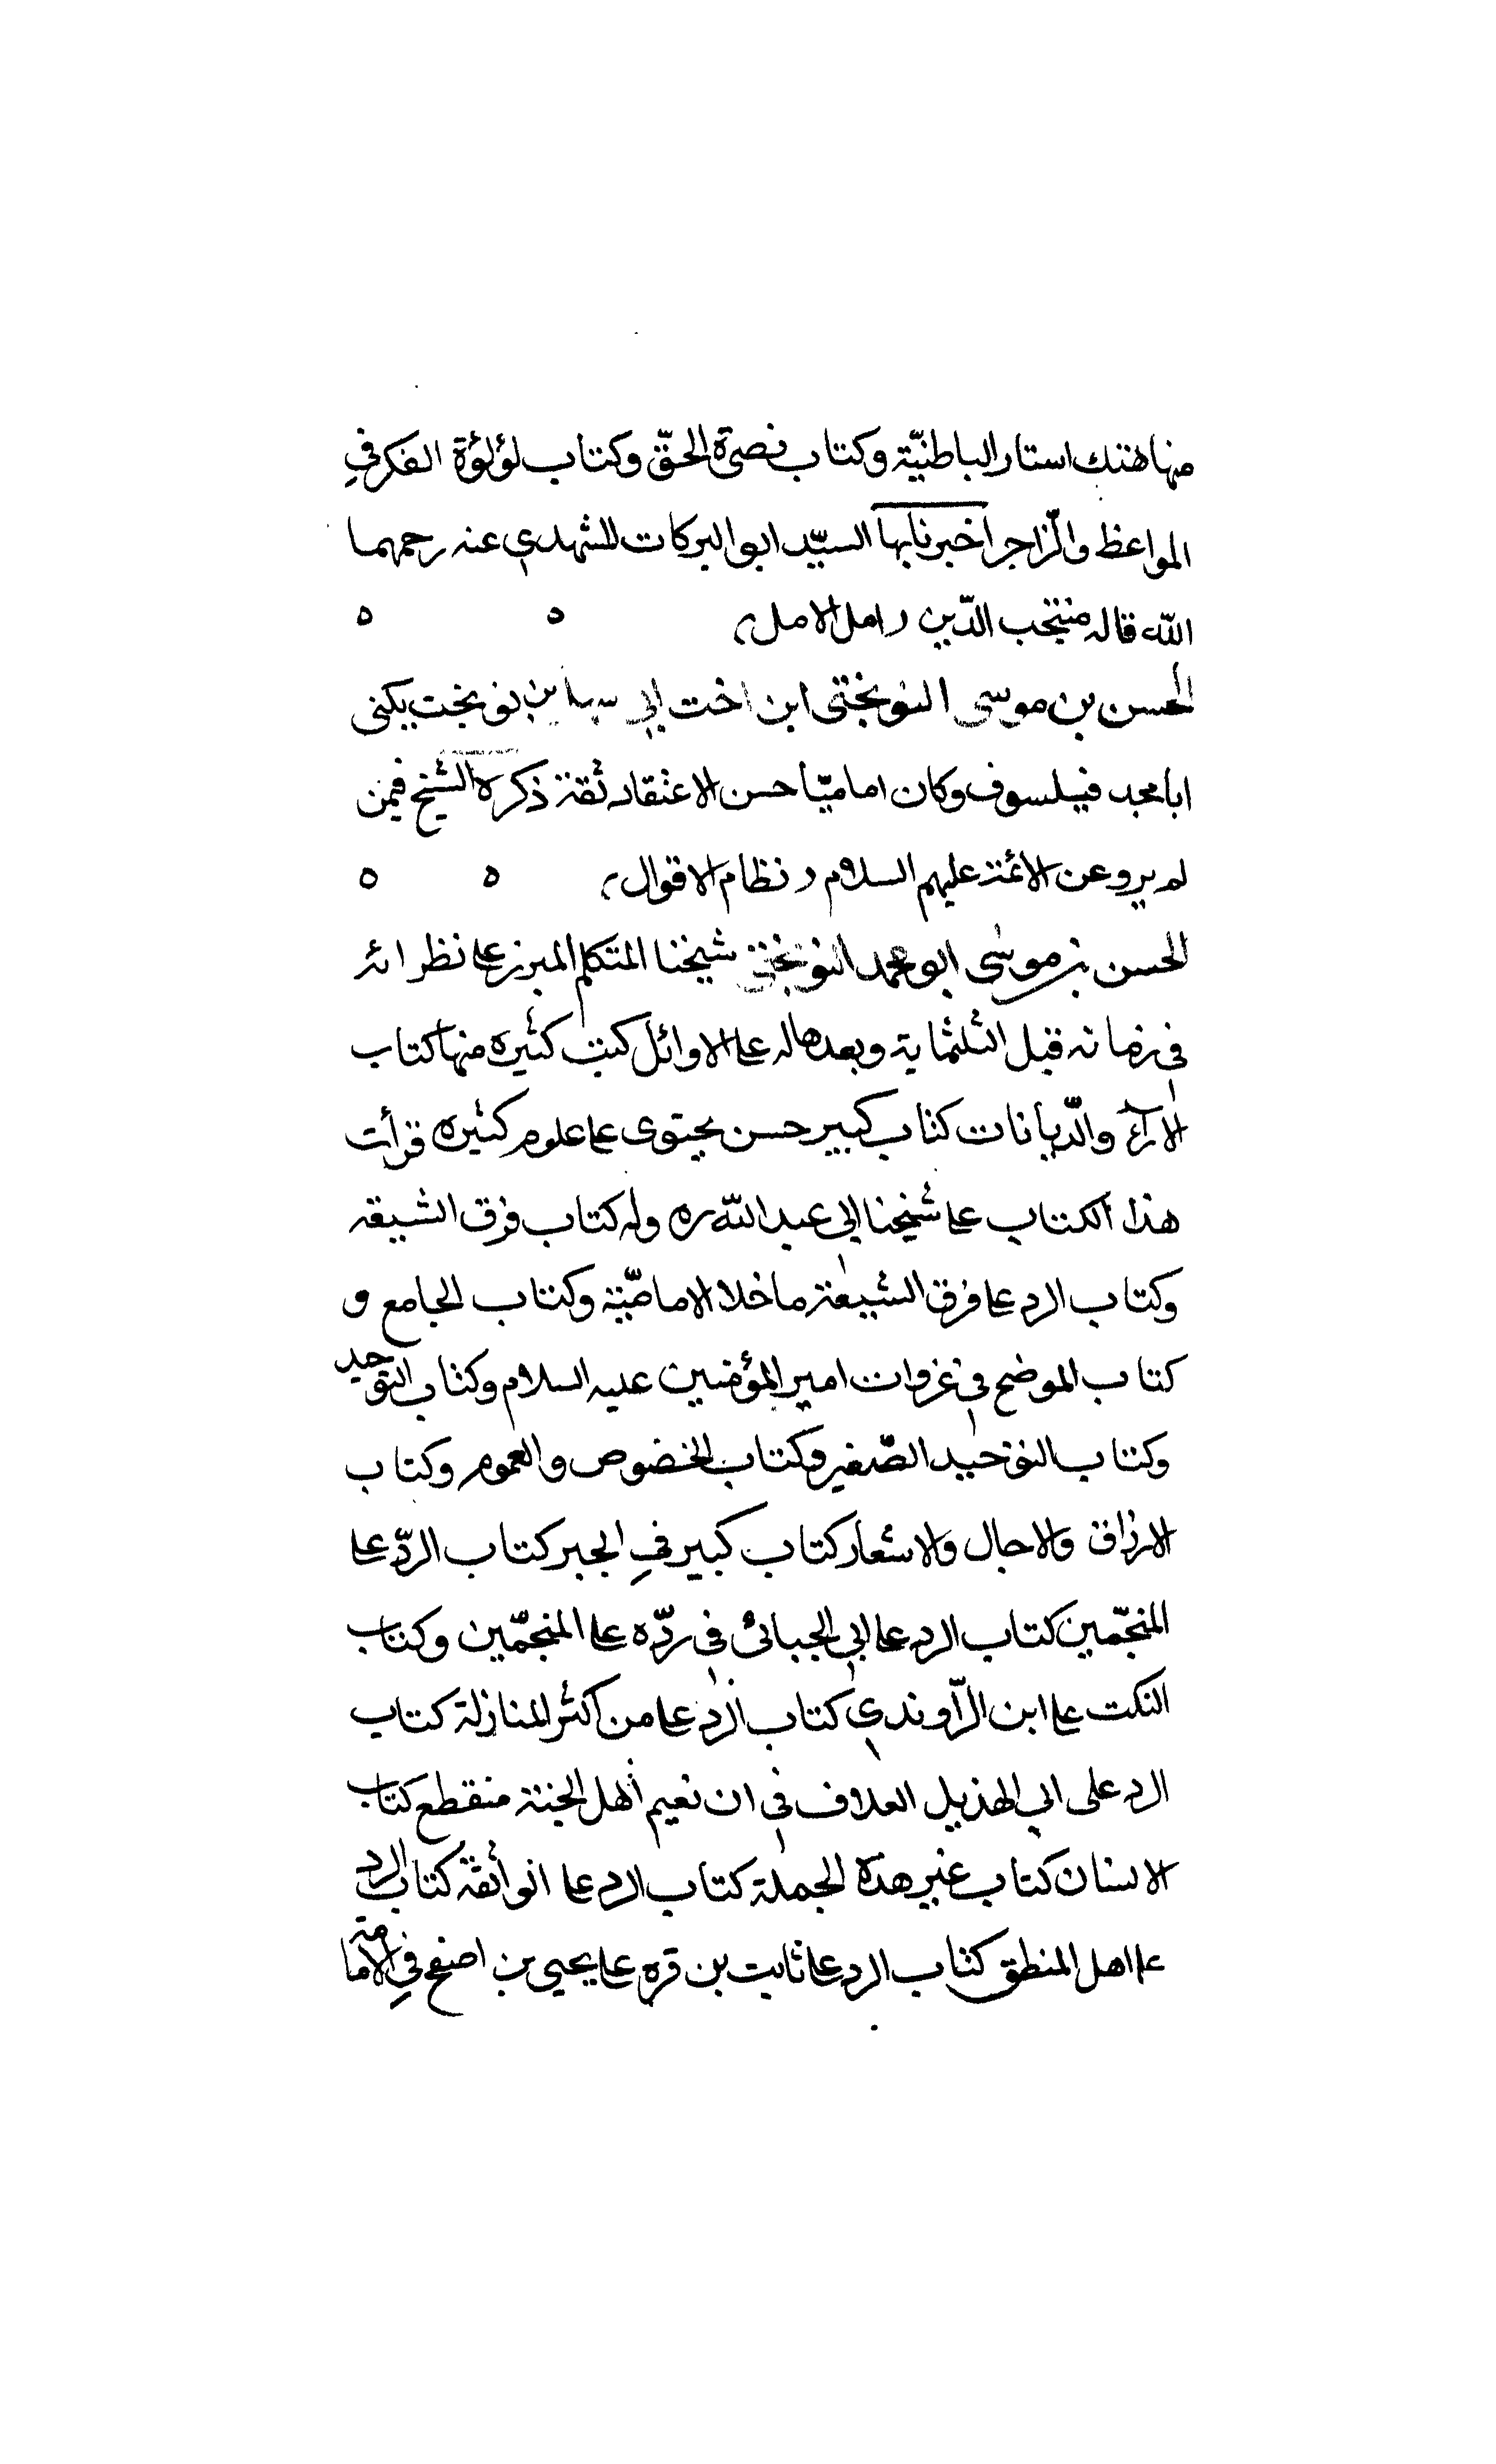 منها هتك استار الباطنيّة وكتاب نصرة الحقّ وكتاب لؤلؤة الفكر في
المواعظ والزّاجر اخبرنا بها السيّد ابوالبركات المشهدي عنه رحمهما
اللّه قاله منتجب الدّين ر امل الامل
الحسن بن موسى النوبختى ابن اخت ابي سهل بن نوبخت يكنى
ابا محمد فيلسوف وكان اماميّا حسن الاعتقاد ثقة ذكره الشيخ فيمن
لم يرو عن الائمة عليهم السلام ر نظام الاقوال
الحسن بن موسى ابو محمد النوبختي شيخنا المتكلم المبرز على نظرائه
في زمانه قبل الثلثماية وبعدها له على الاوائل كتب كثيره منها كتاب
الاراء والدّيانات كتاب كبير حسن يحتوى على علوم كثيره قرأت
هذا الكتاب على شيخنا ابي عبد اللّه ره وله كتاب فرق الشيعه
وكتاب الرد على فرق الشيعة ما خلا الاماميّة وكتاب الجامع و
كتاب الموضح في غزوات امير المؤمنين عليه السلام وكتاب التوحيد
وكتاب التوحيد الصّغير وكتاب الخصوص والعموم وكتاب
الارزاق والاجال والاسعار كتاب كبير في الجبر كتاب الردّ على
المنجّمين كتاب الرد على ابي الجبائي في ردّه على المنجّمين وكتاب
النكت على ابن الرّاوندي كتاب الرد على من اكثر المنازلة كتاب
الرد على ابي الهذيل العلاف في ان نعيم أهل الجنة منقطع كتاب
الانسان كتاب غير هذه الجملة كتاب الرد على الواثقة كتاب الرد
على اهل المنطق كتاب الرد على ثابت بن قره على يحيى بن اصفح في الامامة